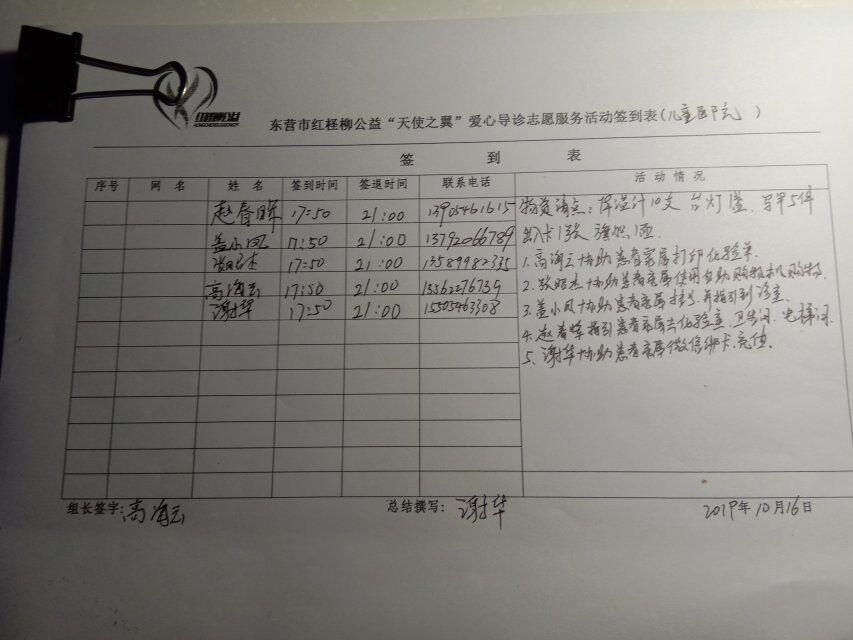 红柽柳
HONGCHENGLIUGONGYI
东营市红柽柳公益“天使之翼”爱心导诊志愿服务活动签到表(儿童医院 )
签 到 表
序号 网名 姓名 签到时间 签退时间 联系电话 活动情况
赵春晖 17:50 21:00 13905461615
盖小凤 17:50 21:00 13792066789
17:50 21:00 13589982335
高海云 17:50 21:00 13562276739
谢华 17:50 21:00 15505463308
物资清点:体温计10支 台灯1盏、马甲5件
出入卡1张 旗帜1面
1.高海云协助患者家属打印化验单.
2.张昭杰协助患者家属使用自助购物机购物.
3.盖小凤协助患者家属挂号.并指引到诊室.
4.赵春晖指引患者家属去化验室.卫生间.电梯间.
5.谢华协助患者家属微信绑卡.充值.
组长签字:高海云
总结撰写:谢华
2019年10月16日